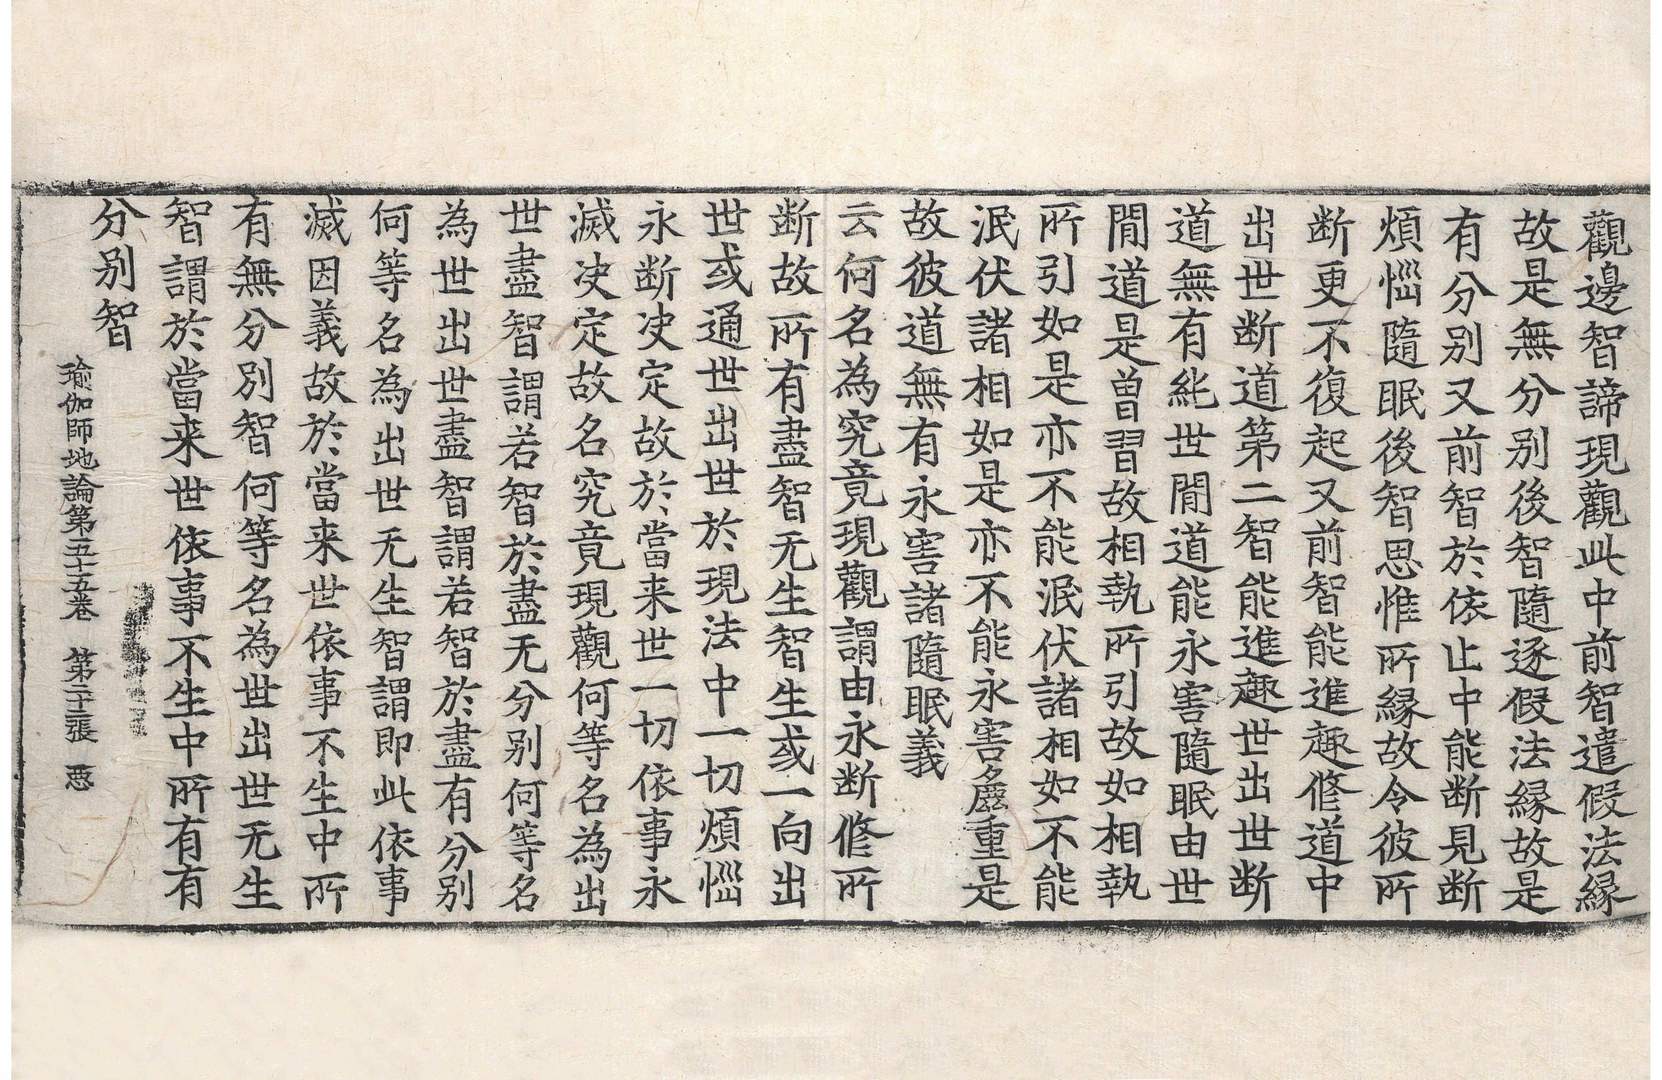 觀邊智諦現觀此中前智遣假法緣
故是無分別後智隨逐假法緣故是
有分別又前智於依止中能断見断
煩惱隨眠後智思惟所緣故令彼所
断更不復起又前智能進趣修道中
出世断道第二智能進趣世出世断
道無有純世間道能永害隨眠由世
間道是曾習故相執所引故如相執
所引如是亦不能泯伏諸相如不能
泯伏諸相如是亦不能永害麁重是
故彼道無有永害諸隨眠義
云何名為究竟現觀謂由永断修所
断故所有盡智无生智生或一向出
世或通世出世於現法中一切煩惱
永断决定故於當来世一切依事永
滅决定故名究竟現觀何等名為出
世盡智謂若智於盡无分别何等名
為世出世盡智謂若智於盡有分别
何等名為出世无生智謂即此依事
滅因義故於當来世依事不生中所
有無分別智何等名為世出世无生
智謂於當来世依事不生中所有有
分别智
瑜伽師地論第五十五卷　第二十二張　惡